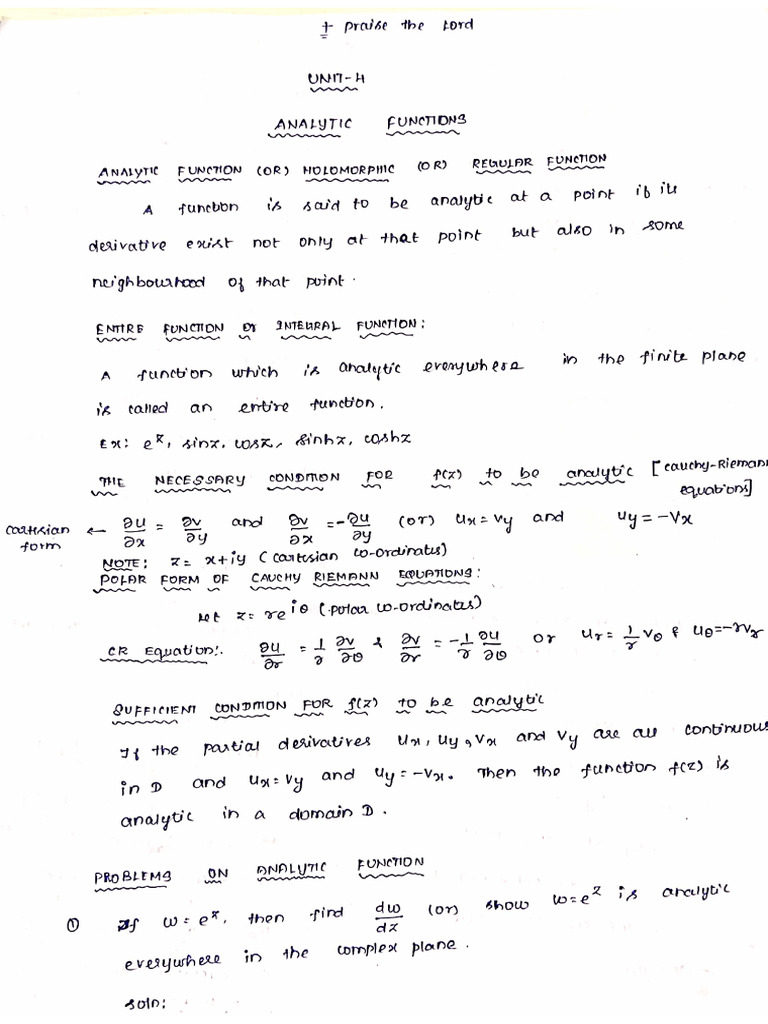 + praise the Lord
UNIT-4
ANALYTIC FUNCTIONS
ANALYTIC FUNCTION (OR) HOLOMORPHIC (OR) REGULAR FUNCTION
A function is said to be analytic at a point if its
derivative exist not only at that point but also in some
neighbourhood of that point.
ENTIRE FUNCTION Or INTEGRAL FUNCTION:
A function which is analytic everywhere in the finite plane
is called an entire function.
Ex: e^z, sinz, cosz, sinhz, coshz
THE NECESSARY CONDITION FOR f(z) to be analytic [cauchy-Riemann
equations]
cartesian form ← ∂u/∂x = ∂v/∂y and ∂v/∂x = -∂u/∂y (or) ux = vy and uy = -vx
NOTE: z = x+iy (cartesian co-ordinates)
POLAR FORM OF CAUCHY RIEMANN EQUATIONS:
Let z = re^iθ (polar co-ordinates)
CR Equation: ∂u/∂r = 1/r ∂v/∂θ & ∂v/∂r = -1/r ∂u/∂θ or ur = 1/r vθ & uθ = -rvr
SUFFICIENT CONDITION FOR f(z) to be analytic
If the partial derivatives ux, uy, vx and vy are all continuous
in D and ux = vy and uy = -vx. Then the function f(z) is
analytic in a domain D.
PROBLEMS ON ANALYTIC FUNCTION
① If w = e^z, then find dw/dz (or) show w = e^z is analytic
everywhere in the complex plane.
soln: